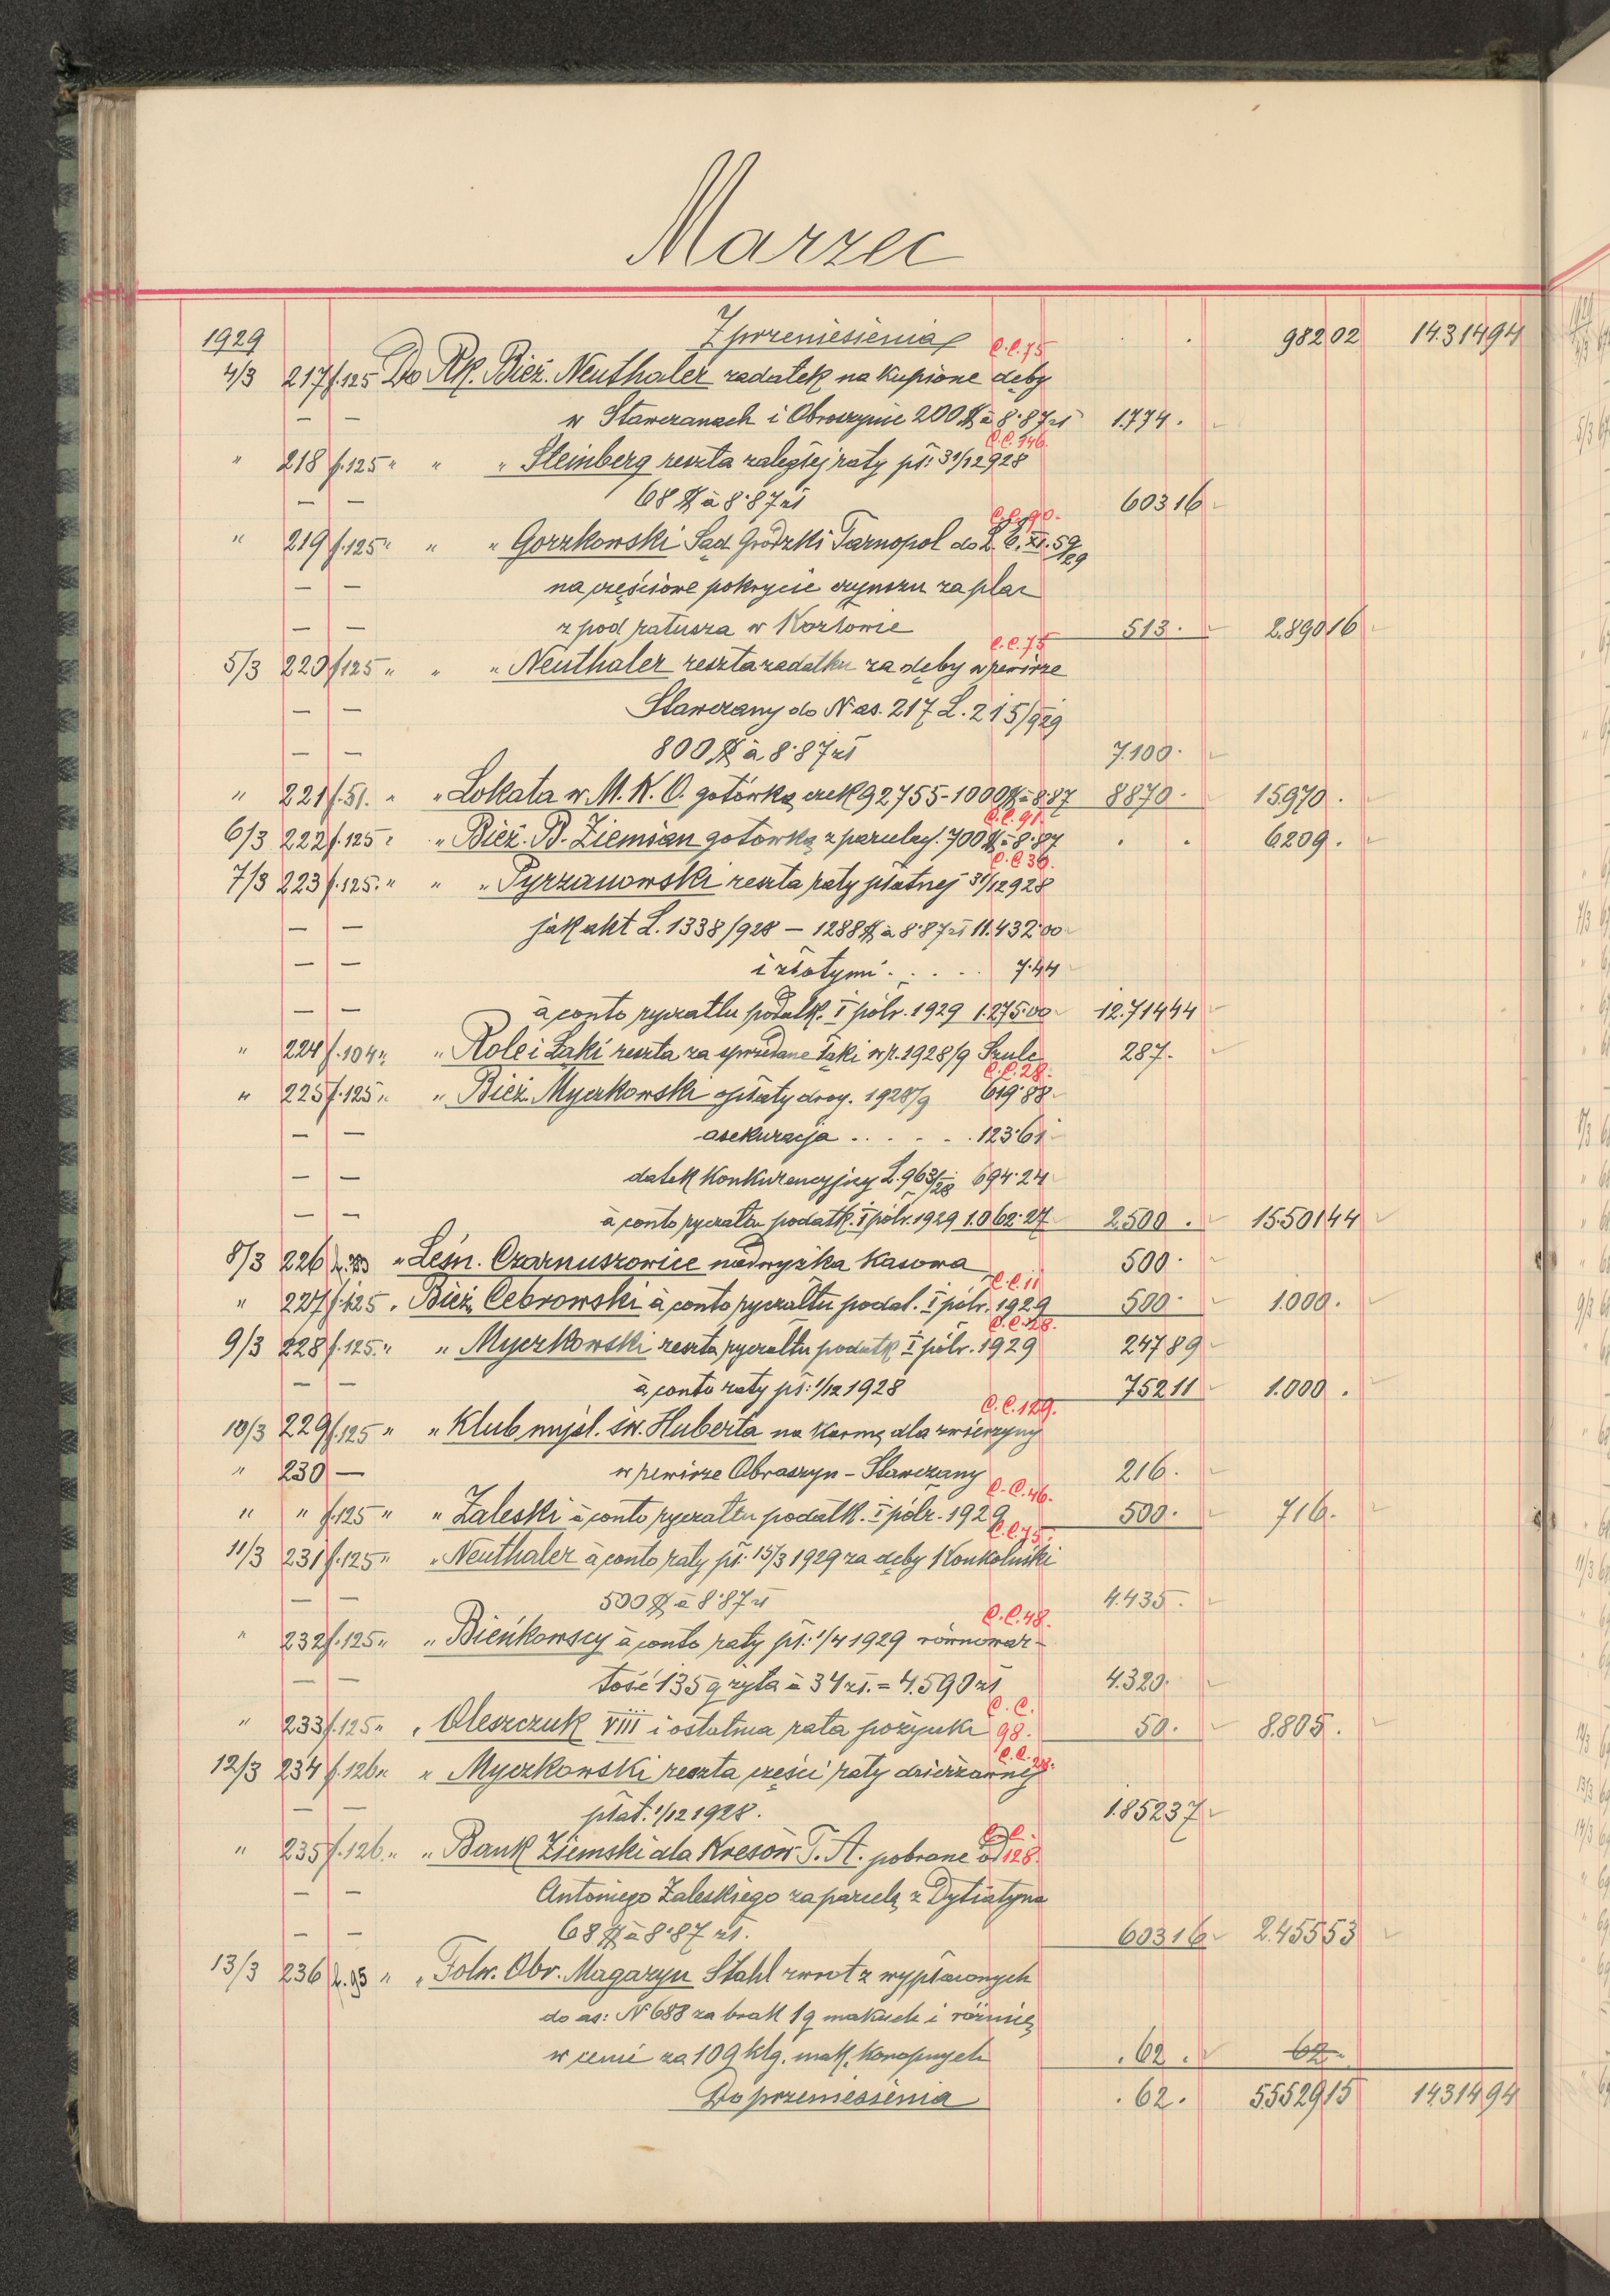 Marzec
1929 Z przeniesienia 982 02 14.314 94
C.C.75
4/3 217 f.125. Do Rk. Bież. Neuthaler zadatek na kupione dęby
— — w Stawczanach i Obroszynie 200 $ à 8·87 zł 1.774 .
C.C.146.
" 218 f.125 " " " Steinberg reszta zaległej raty pł: 31/12 928
— — 68 $ à 8·87 zł 603 16
C.C.90.
" 219 f.125 " " " Gorzkowski Sąd Grodzki Tarnopol do L. C. XI. 59/29
— — na częściowe pokrycie czynszu za plac
— — z pod ratusza w Kozłowie 513 . 2.890 16
C.C.75
5/3 220 f.125 " " " Neuthaler reszta zadatku za dęby w rewirze
— — Stawczany do N as. 217 L. 215/929
— — 800 $ à 8·87 zł 7.100 .
" 221 f.51. " " Lokata w M. K. O. gotówką czek 92755 - 1000 $ à 8·87 8870 . 15.970 .
C.C.91.
6/3 222 f.125 " " Bież. B. Ziemian gotówką z parcelacj. 700 $ à 8·87 . . 6.209 .
C.C 36.
7/3 223 f.125. " " " Tyrzanowski reszta raty płatnej 31/12 928
— — jak akt L. 1338/928 — 1288 $ à 8·87 zł 11.432·00
— — i złotymi . . . . . 7·44
— — à conto ryczałtu podatk. I półr. 1929 1.275·00 12.714 44
" 224 f.104 " " Role i Łąki reszta za sprzedane łąki w r. 1928/9 Szulc 287 .
C.C.28.
" 225 f.125 " " Bież. Myczkowski opłaty drog. 1928/9 619·88
— — asekuracja . . . . . 123·61
— — datek konkurencyjny L. 963/28 694·24
— — à conto ryczałtu podatk. I półr. 1929 1.062·27 2.500 . 15.501 44
8/3 226 " Leśn. Czarnuszowice nadwyżka kasowa 500 .
C.C.11
" 227 f.125 " Bież. Cebrowski à conto ryczałtu podat. I półr. 1929 500 . 1.000 .
C.C.28.
9/3 228 f.125. " " Myczkowski reszta ryczałtu podatk I półr. 1929 247 89
— — à conto raty pł: 1/12 1928 752 11 1.000 .
C.C.129.
10/3 229 f.125 " " Klub myśl. św. Huberta na karmę dla zwierzyny
" 230 — w rewirze Obroszyn - Stawczany 216 .
C.C.46.
" " f.125 " " Zaleski à conto ryczałtu podatk. I półr. 1929 500 . 716 .
C.C.75.
11/3 231 f.125 " " Neuthaler à conto raty pł. 15/3 1929 za dęby Konkolniki
— — 500 $ à 8·87 zł 4.435 .
C.C.48.
" 232 f.125 " " Bieńkowscy à conto raty pł: 1/4 1929 równowar-
— — tość 135 q żyta à 34 zł. = 4.590 zł 4.320 .
C.C.
" 233 f.125 " " Oleszczuk VIII i ostatnia rata pożyczki 98. 50 . 8.805 .
C.C.28.
12/3 234 f.126 " " Myczkowski reszta części raty dzierżawnej
— — płat. 1/12 1928. 1.852 37
C.C.
" 235 f.126. " " Bank Ziemski dla Kresów T. A. pobrane od 128.
— — Antoniego Zaleskiego za parcelę z Dytiatyna
— — 68 $ à 8·87 zł. 603 16 2.455 53
13/3 236 " " Folw. Obr. Magazyn Stahl zwrot z wypłaconych
do as: N 688 za brak 1 q makuch i różnicę
w cenie za 109 klg. mak. konopnych . 62 . 62 .
Do przeniesienia . 62 . 55529 15 14.314 94